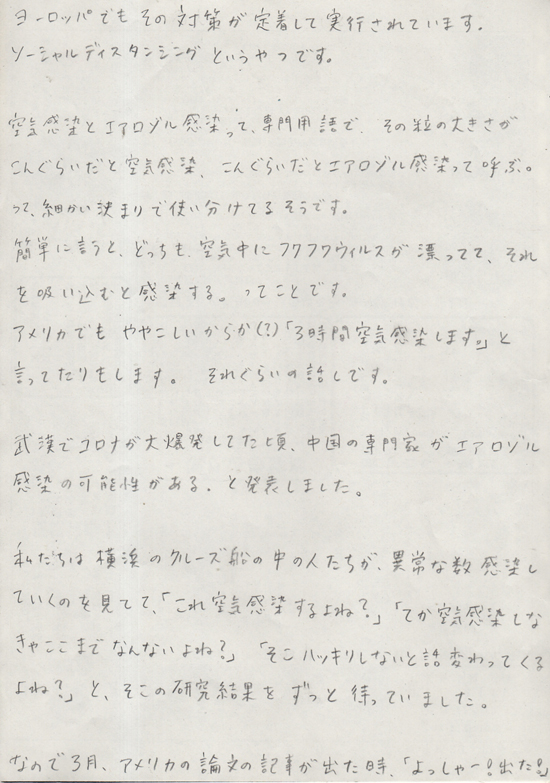 ヨーロッパでもその対策が定着して実行されています。
ソーシャルディスタンシングというやつです。
空気感染とエアロゾル感染って、専門用語で、その粒の大きさが
こんぐらいだと空気感染、こんぐらいだとエアロゾル感染って呼ぶ。
って、細かい決まりで使い分けてるそうです。
簡単に言うと、どっちも、空気中にフワフワウィルスが漂ってて、それ
を吸い込むと感染する。ってことです。
アメリカでもややこしいからか(?)「3時間空気感染します。」と
言ってたりもします。 それぐらいの話しです。
武漢でコロナが大爆発してた頃、中国の専門家がエアロゾル
感染の可能性がある。と発表しました。
私たちは横浜のクルーズ船の中の人たちが、異常な数感染し
ていくのを見てて、「これ空気感染するよね?」「てか空気感染しな
きゃここまでなんないよね?」「そこハッキリしないと話変わってくる
よね?」と、そこの研究結果をずっと待っていました。
なので3月、アメリカの論文の記事が出た時、「よっしゃー!出た!」